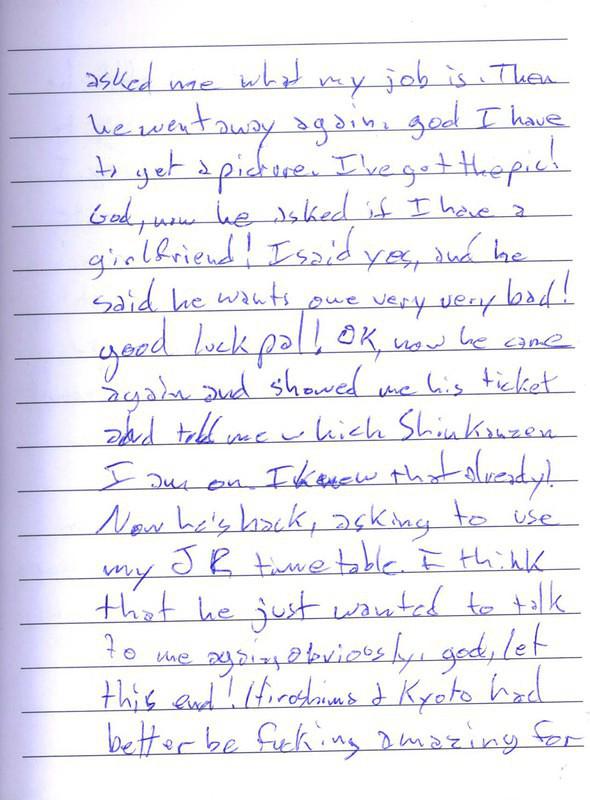 asked me what my job is. Then
he went away again. god I have
to get a picture. I've got the pic!
God, now he asked if I have a
girlfriend! I said yes, and he
said he wants one very very bad!
good luck pal! OK, now he came
again and showed me his ticket
and told me which Shinkanzen
I am on. I knew that already!
Now he's back, asking to use
my JR timetable. I think
that he just wanted to talk
to me again, obviously, god, let
this end! Hiroshima & Kyoto had
better be fucking amazing for